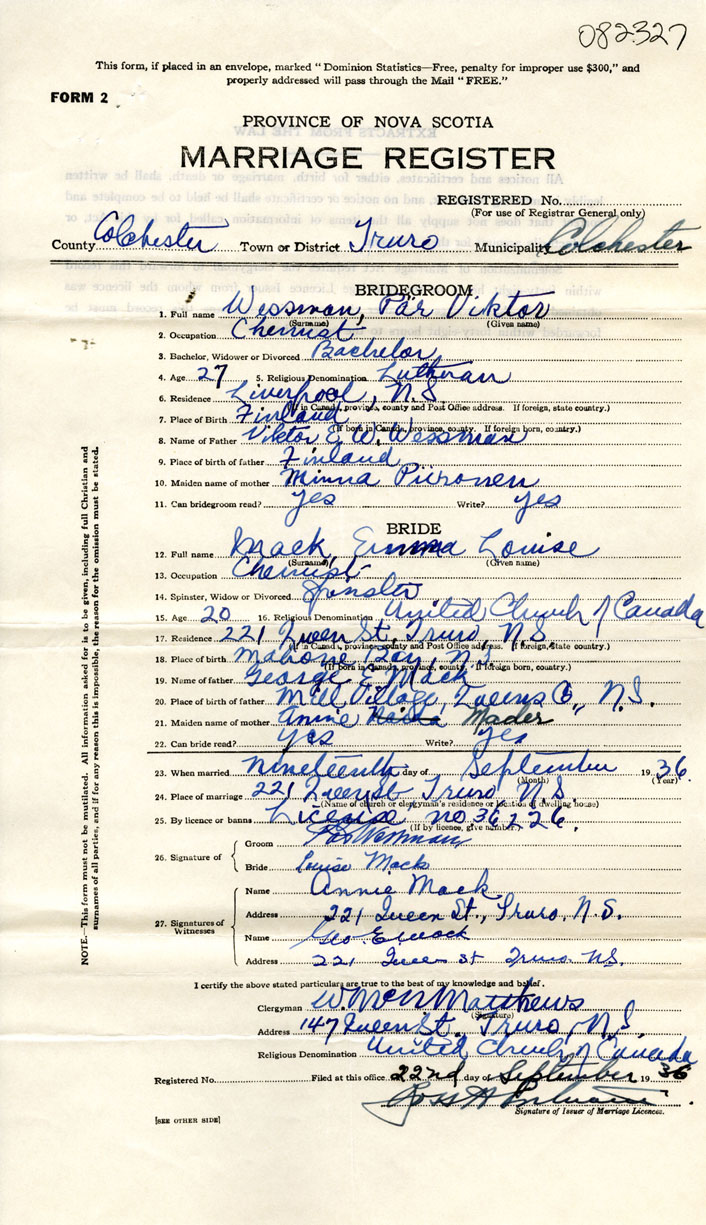 082327
This form, if placed in an envelope, marked "Dominion Statistics—Free, penalty for improper use $300," and
properly addressed will pass through the Mail "FREE."
FORM 2
PROVINCE OF NOVA SCOTIA
MARRIAGE REGISTER
REGISTERED No.
(For use of Registrar General only)
County Colchester Town or District Truro Municipality Colchester
BRIDEGROOM
1. Full name Wessman, Pär Viktor
(Surname) (Given name)
2. Occupation Chemist
3. Bachelor, Widower or Divorced Bachelor
4. Age 27 5. Religious Denomination Lutheran
6. Residence Liverpool, N.S.
(If in Canada, province, county and Post Office address. If foreign, state country.)
7. Place of Birth Finland
(If born in Canada, province, county. If foreign born, country.)
8. Name of Father Viktor E. W. Wessman
9. Place of birth of father Finland
10. Maiden name of mother Minna Piironen
11. Can bridegroom read? yes Write? yes
BRIDE
12. Full name Mack, Emma Louise
(Surname) (Given name)
13. Occupation Chemist
14. Spinster, Widow or Divorced Spinster
15. Age 20 16. Religious Denomination United Church of Canada
17. Residence 221 Queen St, Truro, N.S.
(If in Canada, province, county and Post Office address. If foreign, state country.)
18. Place of birth Mahone Bay, N.S.
(If born in Canada, province, county. If foreign born, country.)
19. Name of father George E Mack
20. Place of birth of father Mill Village, Queens Co., N.S.
21. Maiden name of mother Annie Mader
22. Can bride read? yes Write? yes
23. When married nineteenth day of September 1936
(Month) (Year)
24. Place of marriage 221 Queen St Truro N.S
(Name of church or clergyman's residence or location of dwelling house)
25. By licence or banns License no 36226.
(If by licence, give number.)
26. Signature of
Groom Wessman
Bride Louise Mack
27. Signatures of Witnesses
Name Annie Mack
Address 221 Queen St., Truro, N.S.
Name Geo E Mack
Address 221 Queen st Truro N.S.
I certify the above stated particulars are true to the best of my knowledge and belief.
Clergyman Matthews
(Signature)
Address 147 Queen St. Truro, N.S.
Religious Denomination United Church of Canada
Registered No. Filed at this office 22nd day of September 1936
Signature of Issuer of Marriage Licences.
[SEE OTHER SIDE]
NOTE.—This form must not be mutilated. All information asked for is to be given, including full Christian and
surnames of all parties, and if for any reason this is impossible, the reason for the omission must be stated.